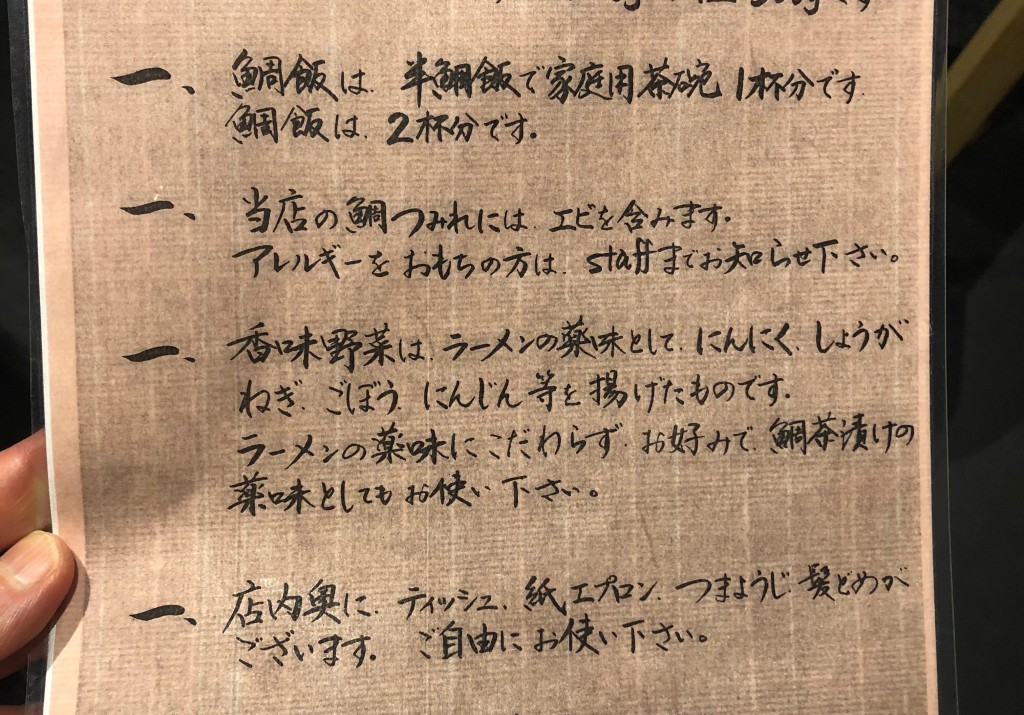 一、鯛飯は、半鯛飯で家庭用茶碗 1杯分です
鯛飯は、2杯分です。
一、当店の鯛つみれには、エビを含みます。
アレルギーをおもちの方は、staffまでお知らせ下さい。
一、香味野菜は、ラーメンの薬味として、にんにく、しょうが
ねぎ、ごぼう、にんじん等を揚げたものです。
ラーメンの薬味にこだわらず、お好みで、鯛茶漬けの
薬味としてもお使い下さい。
一、店内奥に、ティッシュ、紙エプロン、つまようじ、髪どめが
ございます。ご自由にお使い下さい。